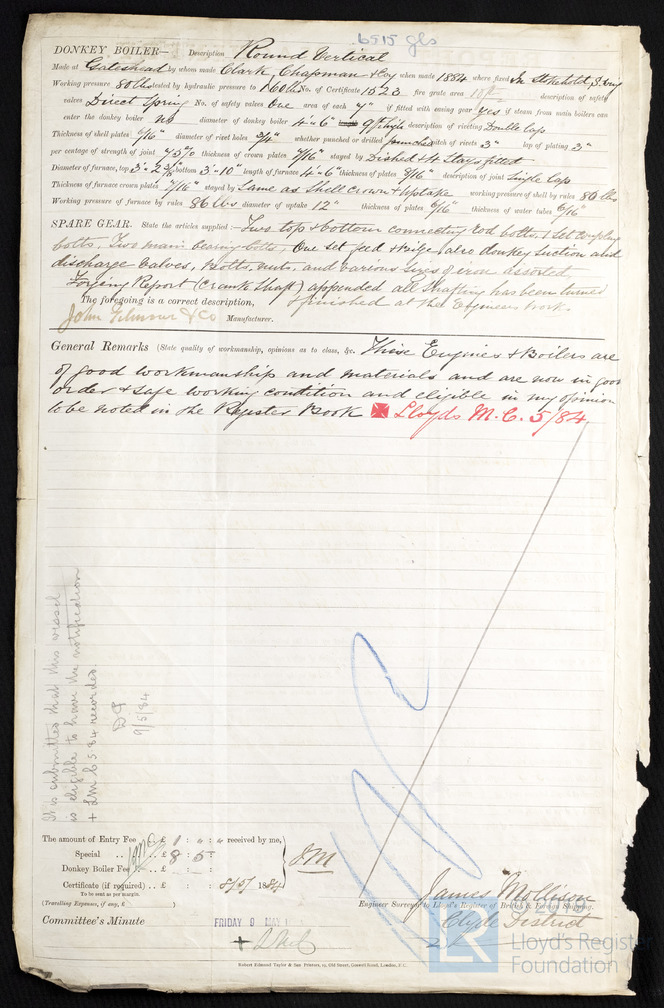 6515 gls
DONKEY BOILER— Description Round Vertical
Made at Gateshead by whom made Clark, Chapman & Co when made 1884 where fixed In Stokehold
Working pressure 80 lbs tested by hydraulic pressure to 160 lbs No. of Certificate 1523 fire grate area description of safety
valves Direct Spring No. of safety valves One area of each 7" if fitted with easing gear yes if steam from main boilers can
enter the donkey boiler no diameter of donkey boiler 4' 6" 9 ft high description of riveting Double Lap
Thickness of shell plates 7/16" diameter of rivet holes 3/4" whether punched or drilled punched pitch of rivets 3" lap of plating 3"
per centage of strength of joint 75% thickness of crown plates 7/16" stayed by Dished & 4 Stays fitted
Diameter of furnace, top 3' 2 bottom 3' 10" length of furnace 4' 6" thickness of plates 7/16" description of joint Single Lap
Thickness of furnace crown plates 7/16" stayed by Same as Shell crown & Uptake working pressure of shell by rules 86 lbs
Working pressure of furnace by rules 86 lbs diameter of uptake 12" thickness of plates 6/16" thickness of water tubes 6/16"
SPARE GEAR. State the articles supplied:— Two top & bottom connecting rod bolts, 1 Set Coupling
bolts, Two main bearing bolts, One set feed & bilge, also donkey suction and
discharge valves, bolts, nuts, and various sizes of iron assorted,
Forging Report (Crank Shaft) appended all Shafting has been turned
The foregoing is a correct description, & finished at the Engineers Work.
John & Co Manufacturer.
General Remarks (State quality of workmanship, opinions as to class, &c. These Engines & Boilers are
of good workmanship and materials and are now in good
order & safe working condition and eligible in my opinion
to be noted in the Register Book Lloyds M.C. 5/84
It is submitted that this vessel
is eligible to have the notification
+ LMC 5.84 recorded.
9/5/84
The amount of Entry Fee .. £ 1 : " : " received by me,
Special .. .. £ 8 : 5 :
Donkey Boiler Fee .. £ : :
Certificate (if required) .. £ : : 8/5/ 1884
To be sent as per margin.
(Travelling Expenses, if any, £ )
JM
James Mollison
Engineer Surveyor to Lloyd's Register of British & Foreign Shipping.
Clyde District
Committee's Minute
FRIDAY 9 MAY
Robert Edmund Taylor & Son Printers, 19, Old Street, Goswell Road, London, E.C.
LR
Lloyd's Register
Foundation